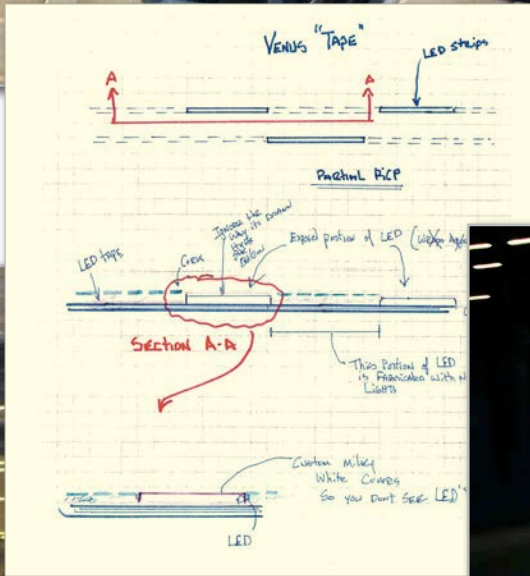 VENUS "TAPE"
LED STRIPS
A
A
PARTIAL RCP
IGNORE the
WAY its DRAWN
HERE
SEE
BELOW
Exposed portion of LED
LED TAPE
SECTION A-A
This PORTION OF LED
is FABRICATED WITH
LIGHTS
Custom Milky
White Covers
So you Dont SEE LED's
LED